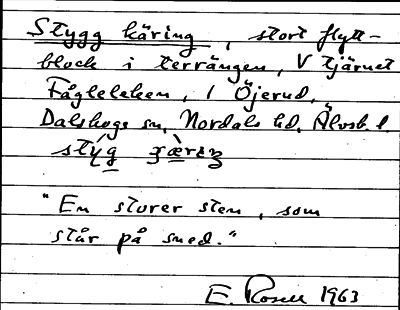 Stygg käring, stort flytt-
block i terrängen, V tjärnet
Fågleleken, i Öjerud,
Dalskogs sn, Nordals hd, Älvsb. l
"En storer sten, som
står på sned."
E. Rosell 1963